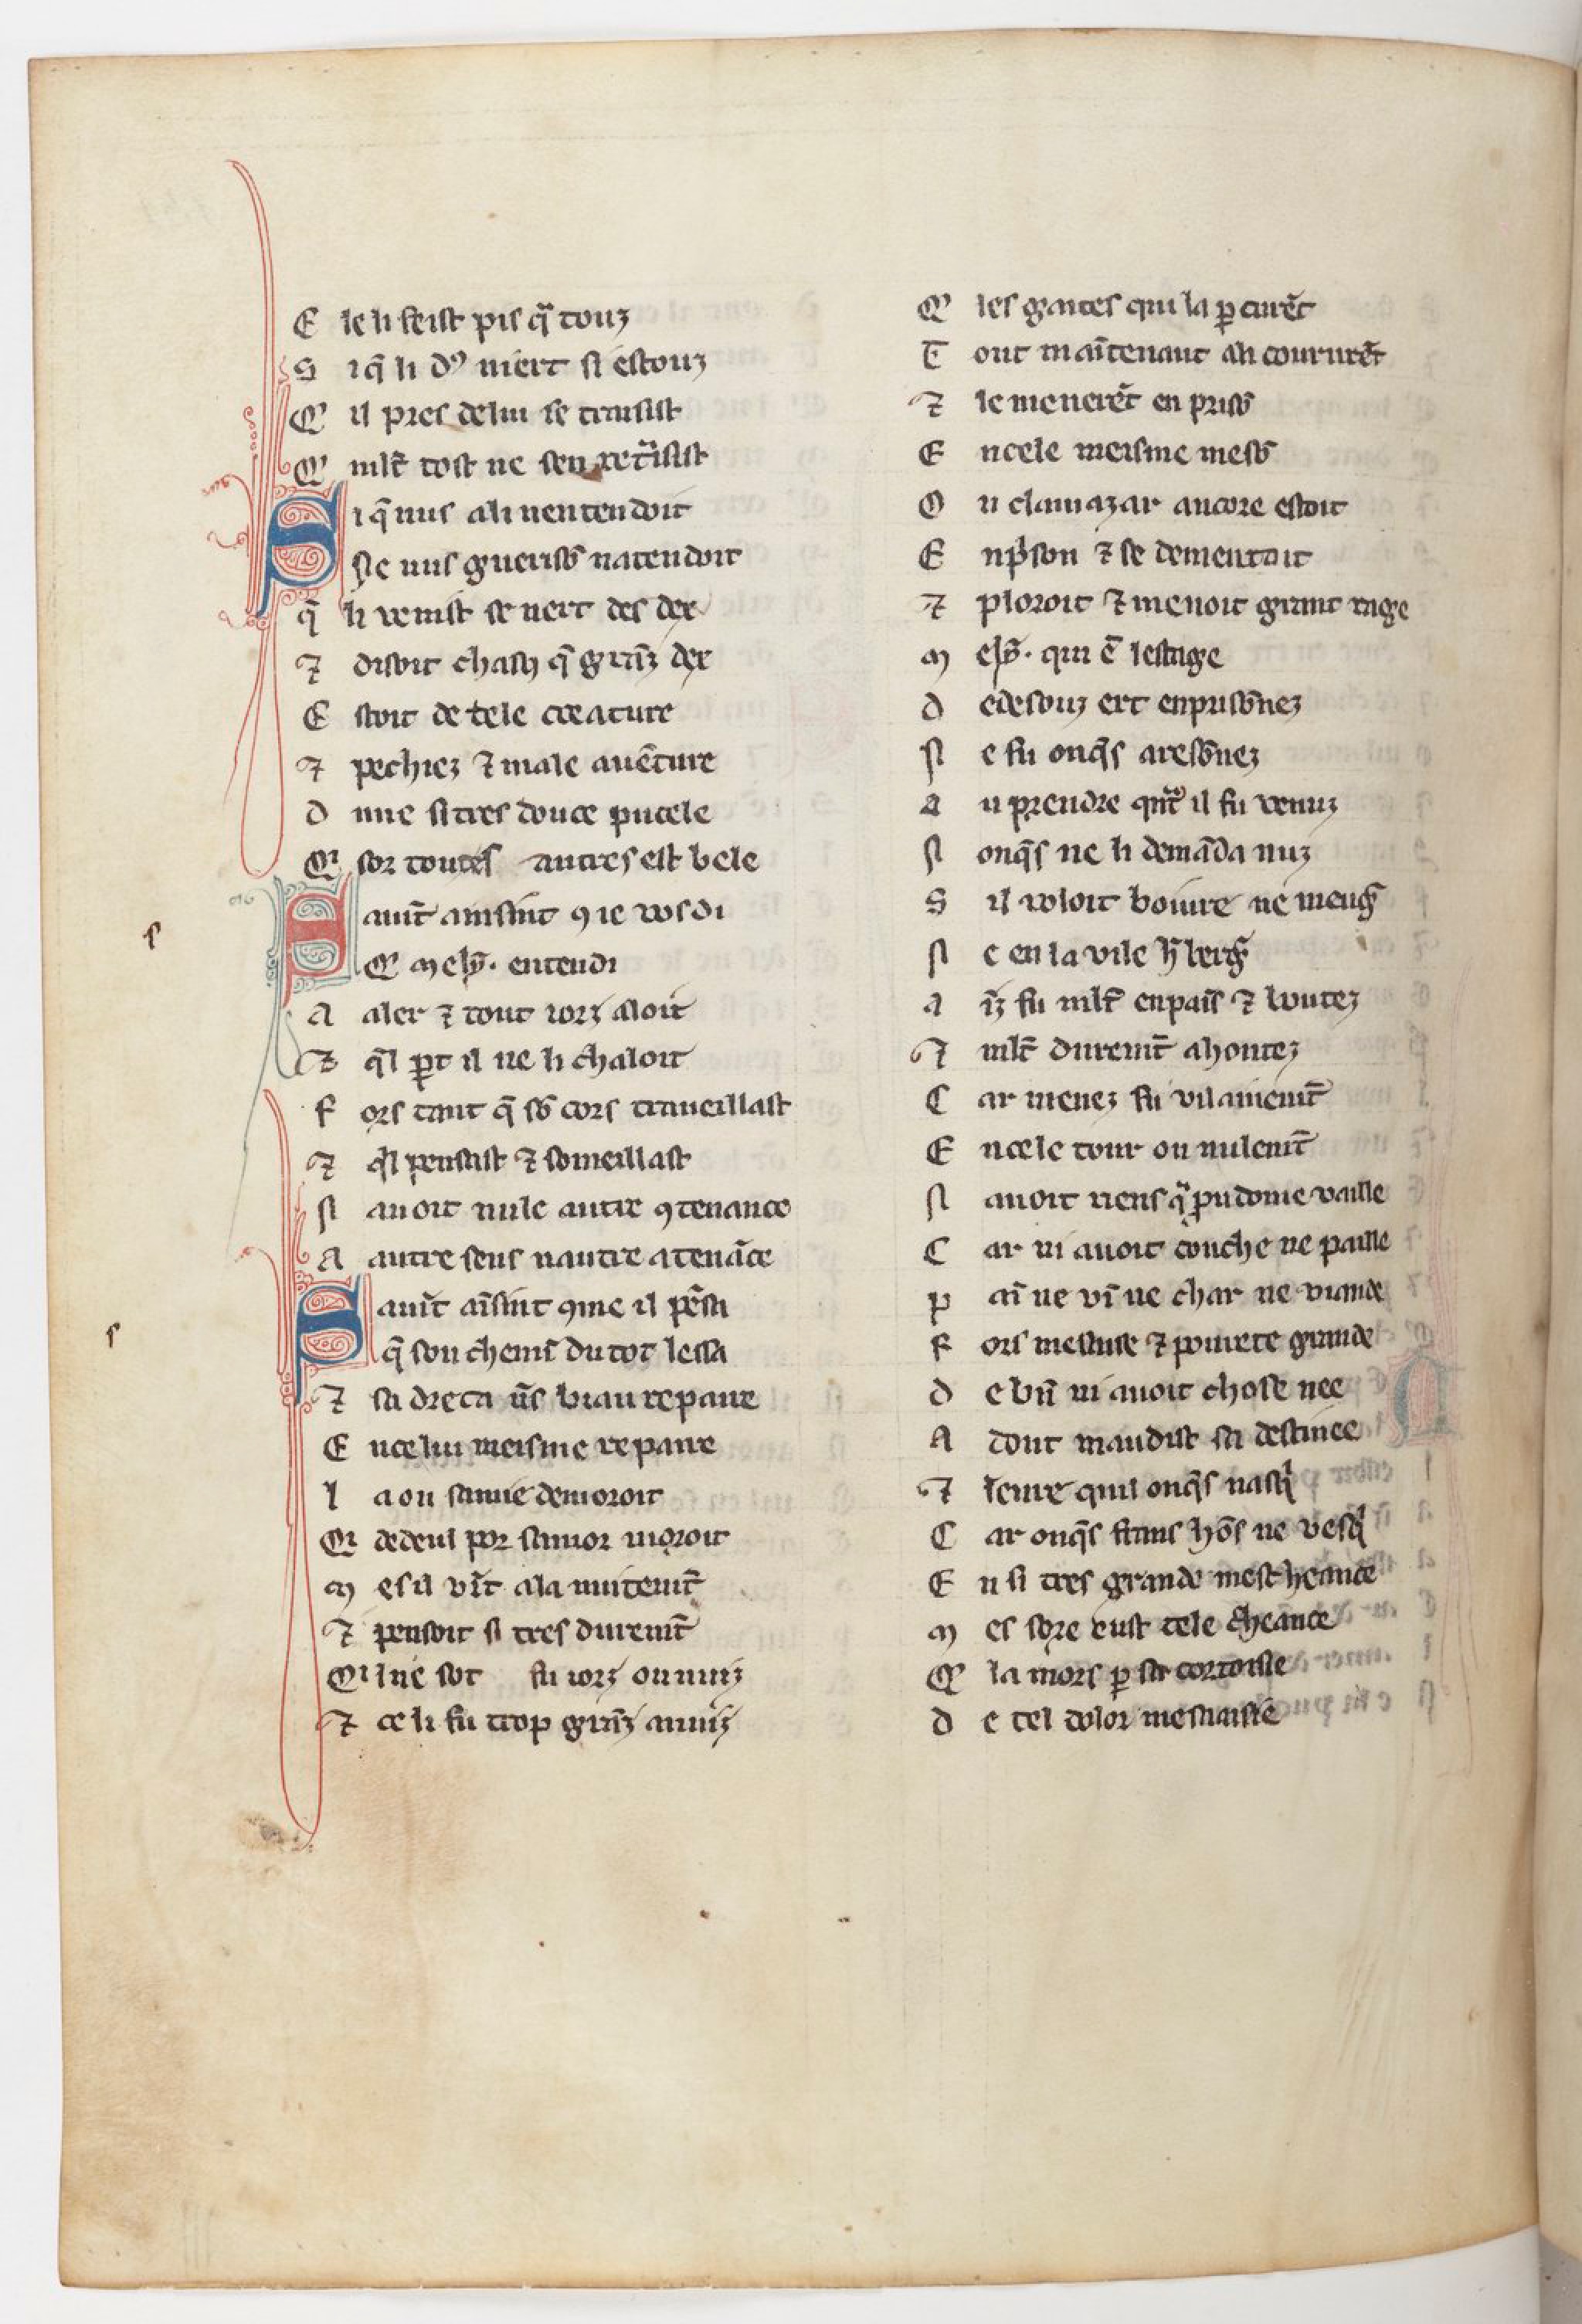 E le li feist pis q̃ touz
S i q̃ li dꝰ niert si estouz
Q' il pres de lui se traisist
Q' mlt̃ tost ne sen retͣisist
S i q̃ nus a li nentendoit
Ne nus guerisõ natendoit
q̃ li venist se nert des dex
⁊ disoit chascꝯ q̃ grãz dex
E stoit de tele creature
⁊ pechiez ⁊ male auẽture
D une si tres douce pucele
Qi sor toutes autres est bele
S auãt ainsint ꝯ ie vos di
Q' Mely. entendi
A aler ⁊ tout iorz aloit
⁊ q̃l part il ne li chaloit
F ors tant q̃ sõ cors traueillast
⁊ q'l pensast ⁊ someillast
N auoit nule autre ꝯtenance
A autre sens nautre atenãce
S auãt aĩsint ꝯme il pẽsa
q̃ son chemĩ du tot lessa
⁊ sa dreca ũs biau repaire
E n celui meisme repaire
L a ou samie demoroit
Qi de deul por samor moroit
M es il vĩt a la nuitenãt
⁊ pensoit si tres durem̃t
Qi l ne sot fu iorz ou nuiz
⁊ ce li fu trop grãz anuiz
Q' les gaites qui la ꝑcurẽt
T out maĩtenant a li coururẽt
⁊ le menerẽt en prisõ
E n cele meisme mesõ
O u clamazar ancore estoit
E n p'son ⁊ se dementoit
⁊ ploroit ⁊ menoit grant rage
M ely. qui ẽ lestage
D edesouz ert enprisõnez
N e fu onq̃s aresõnez
A u prendre qñt il fu venuz
N onq̃s ne li demãda nuz
S il voloit boiure ne meng̃
N e en la vile h̃berg̃
A ĩz fu mlt̃ enpaĩs ⁊ boutez
⁊ mlt̃ durem̃t ahontez
C ar menez fu vilainem̃t
E n cele tour ou nulem̃t
N auoit riens qͣ prudome vaille
C ar ni auoit couche ne paille
P aĩ ne vĩ ne char ne viande
F ors mesaise ⁊ pourete grande
D e bñ ni auoit chose nee
A dont maudist sa destinee
⁊ leure quil onq̃s nasq'
C ar onq̃s frans hõs ne vesq'
E n si tres grande mescheance
M es sore eust tele cheance
Q' la mors ꝑ sa cortoisie
D e tel dolor mesnaisie